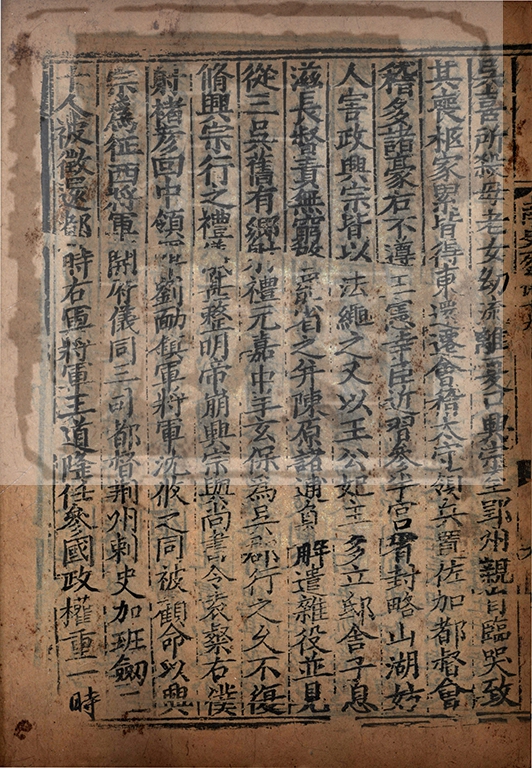 吳喜所殺母老女幼流離夏口興宗至郢州親自臨哭致
其喪柩家累皆得東還遷會稽太守領兵置佐加都督會
稽多諸豪右不遵王憲幸臣近習參半宮省封略山湖妨
人害政興宗皆以法繩之又以王公妃主多立邸舍子息
滋長督責無窮罷省之并陳原諸逋負解遣雜役並見
從三吳舊有鄉射禮元嘉中羊玄保為吳郡行之久不復
脩興宗行之禮儀整明帝崩興宗與尚書令袁粲右僕
射褚彦回中領軍劉勔軍將軍沈攸之同被顧命以興
宗為征西將軍開府儀同三司都督荆州刺史加班劔二
十人被徵還都時右軍將軍王道隆任參國政權重一時